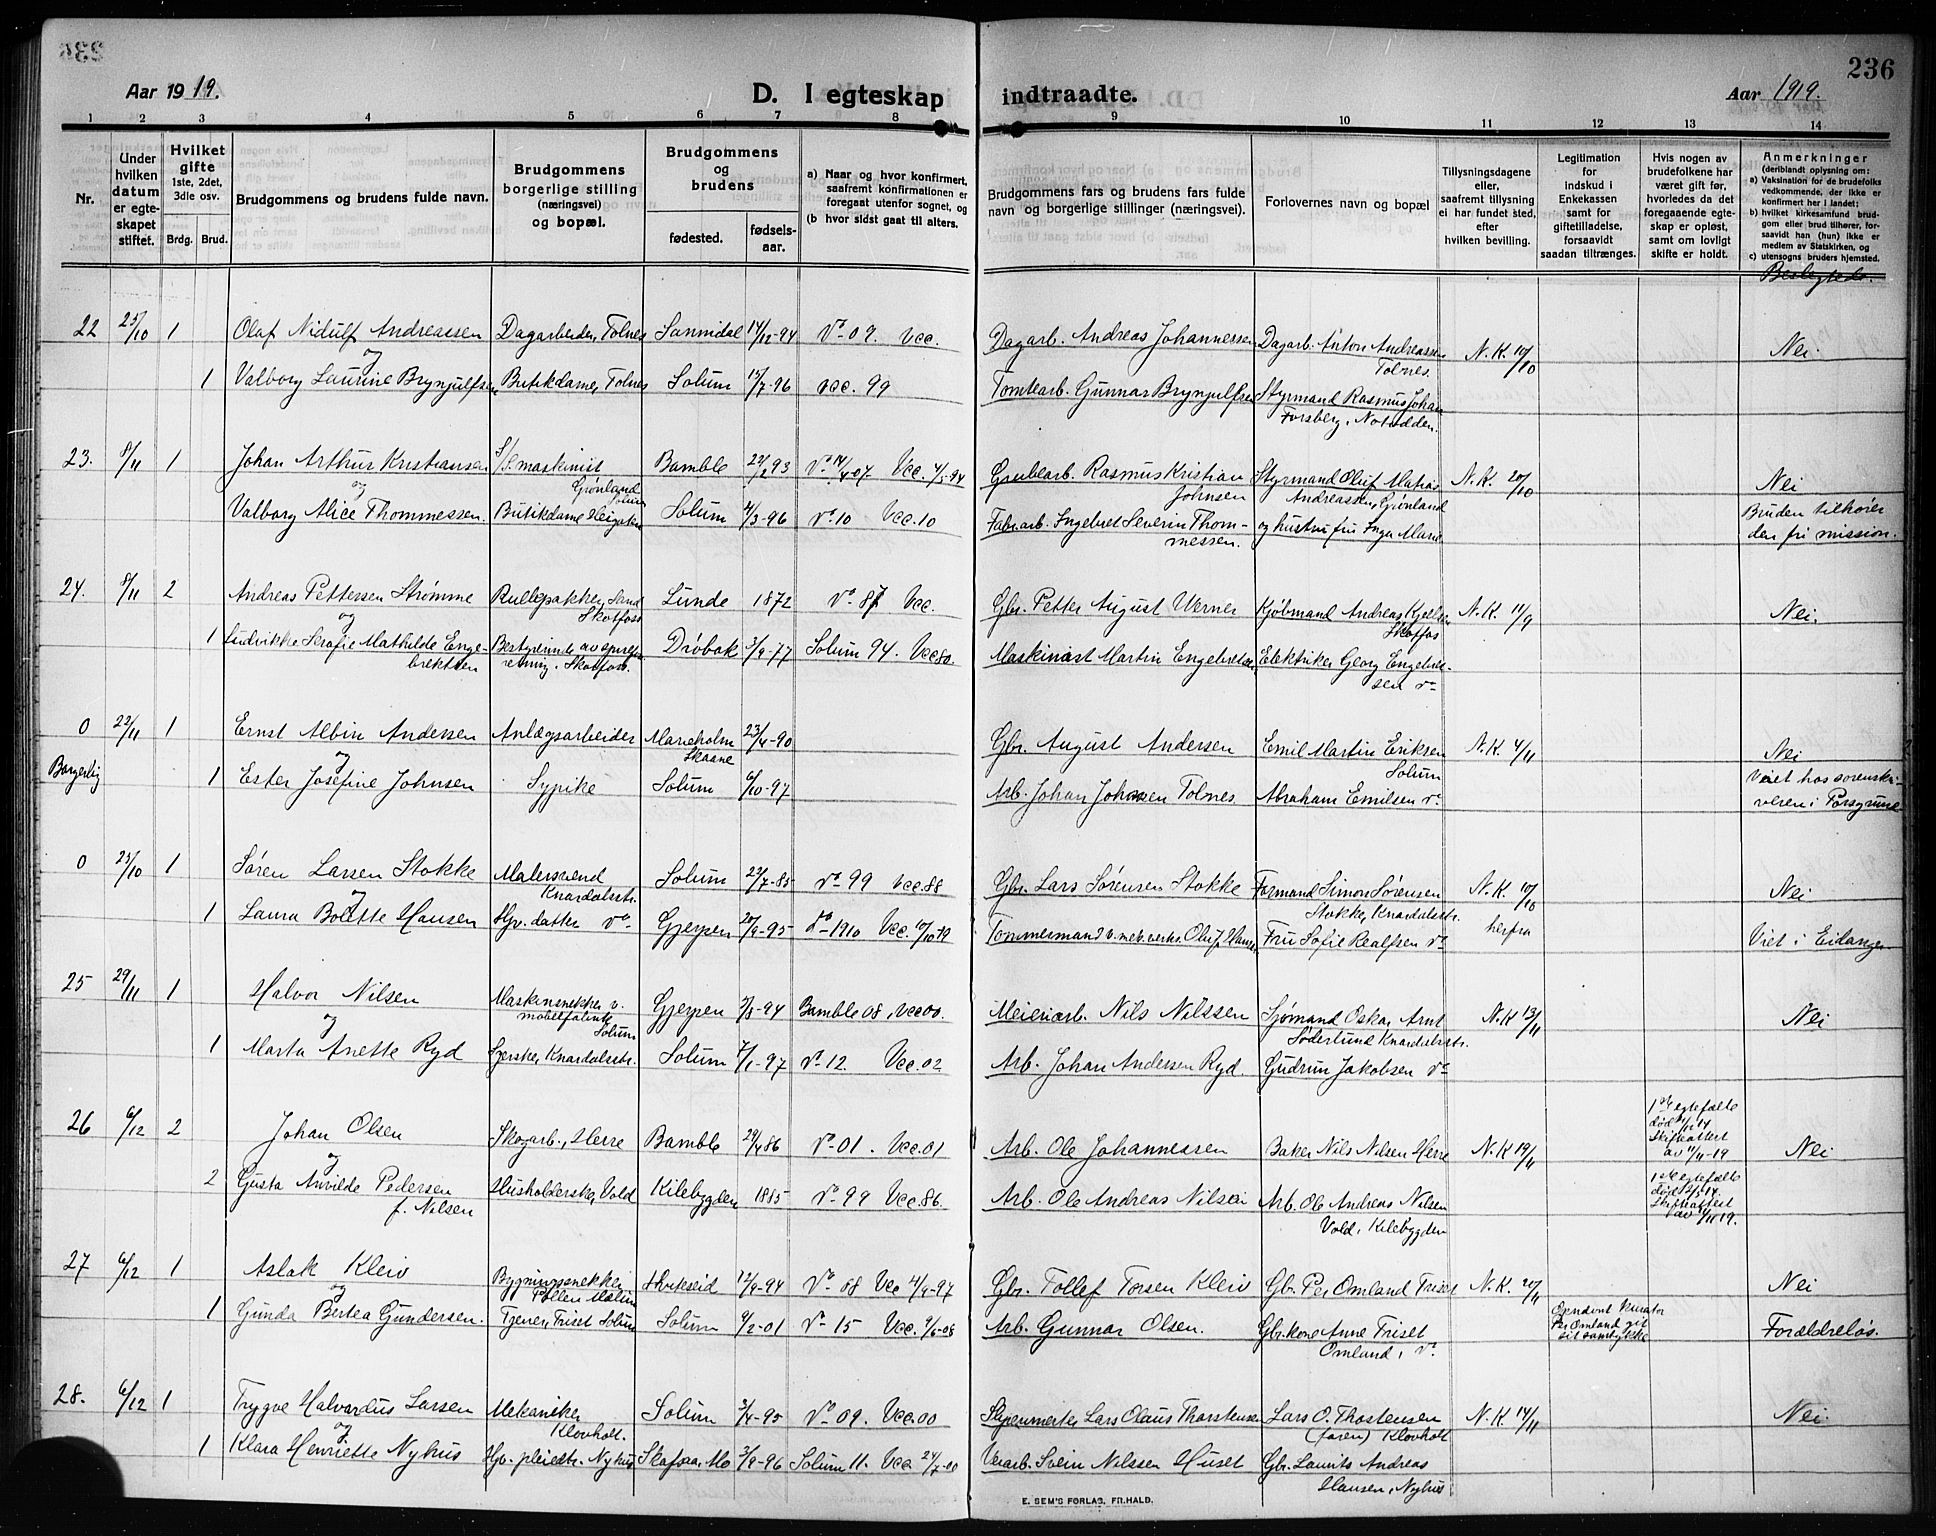 236
Aar 1919.
D. I egteskap indtraadte.
Aar 1919.
1 2 3 4 5 6 7 8 9 10 11 12 13 14
Nr.
Under hvilken datum er egteskapet stiftet.
Hvilket gifte 1ste, 2det, 3die osv.
Brdg. Brud.
Brudgommens og brudens fulde navn.
Brudgommens borgerlige stilling (næringsvei) og bopæl.
Brudgommens og brudens
fødested. fødselsaar.
a) Naar og hvor konfirmert, saafremt konfirmationen er foregaat utenfor sognet, og
(b hvor sidst gaat til alters.
Brudgommens fars og brudens fars fulde navn og borgerlige stillinger (næringsvei).
Forlovernes navn og bopæl
Tillysningsdagene eller, saafremt tillysning ei har fundet sted, efter hvilken bevilling.
Legitimation for indskud i Enkekassen samt for giftetilladelse, forsaavidt saadan tiltrænges.
Hvis nogen av brudefolkene har været gift før, hvorledes da det foregaaende egteskap er opløst, samt om lovligt skifte er holdt.
Anmerkninger (deriblandt oplysning om:
a) Vaksination for de brudefolks vedkommende, der ikke er konfirmert her i landet;
b) hvilket kirkesamfund brudgom eller brud tilhører, forsaavidt han (hun) ikke er medlem av Statskirken, og
c) utensogns bruders hjemsted.
Beslegtede.
22 25/10 1 Olaf Nidulf Andreassen Dagarbeider, Tolnes Sannidal 14/12-94 do 09. Vcc. Dagarb. Andreas Johannessen Dagarb. Anton Andreassen Tolnes N.K. 10/10 Nei.
og
1 Valborg Laurine Brynjulfsen Butikdame, Tolnes Solum 15/7-96 vcc. 99 Tomtearb. Gunnar Brynjulfsen Styrmand Rasmus Johan Forsberg, Notodden.
23. 8/11 1 Johan Arthur Kristiansen S/S. maskinist Grønland Solum Bamble 22/2 93 do 14/4 07 Vcc. 4/5-94 Grubearb. Rasmus Kristian Johnsen Styrmand Oluf Matias Andreassen, Grønland N.K. 20/10 Nei
og
Valborg Alice Thommessen. Butikdame Solum 4/3-96 do 10 Vcc. 10 Fabrarb. Ingebret Severin Thommessen. og hustru fru Inga Marie Bruden tilhører den fri mission.
24. 8/11 2 Andreas Pettersen Strømme Rullepakker, Sand Skotfoss Lunde 1872 do 87 Vcc. Gbr. Petter August Werner Kjøbmand Andreas Kjellsen Skotfos N.K. 11/9 Nei.
og
1 Ludvikke Serafie Mathilde Engebrektsen Bestyrerinde av Skotfoss. Drøbak 3/9-77 Solum 94. Vcc 80. Maskinist Martin Engebretsen Elektriker Georg Engebretsen do
0 22/11 1 Ernst Albin Andersen Anlægsarbeider Marieholm Skaane 23/4-90 Gbr. August Andersen Emil Martin Eriksen Solum N.K. 4/11 Nei
Borgerlig og
1 Ester Josefine Johnsen Sypike Solum 6/10-97 Arb. Johan Johnsen Tolnes Abraham Emilsen do Viet hos sorenskriveren i Porsgrund
0 25/10 1 Søren Larsen Stokke Malersvend Knardalsstr. Solum 22/7-85 do 99 Vcc. 88 Gbr. Lars Sørensen Stokke Formand Simon Sørensen Stokke, Knardalsstr. N.K. 10/10 herfra Nei
og
1 Laura Bolette Hansen Hjv. datter do Gjerpen 20/9-95 do 1910 Vcc. Tømmermand v. mek. verks. Ole J. Hansen Fru Sofie Realfsen do Viet i Eidanger
25 29/11 1 Halvor Nilsen Maskinsnekker v. møbelfabrik Solum Gjerpen 2/8-94 Bamble 08, Vcc 00. Meieriarb. Nils Nilssen Sjømand Oskar Arnt Søderlund Knardalsstr. N.K 13/11 Nei
og
1 Marta Anette Ryd Syerske, Knardalsstr. Solum 7/1-97 do 12. Vcc. 02 Arb. Johan Andersen Ryd. Gudrun Jakobsen do
26 6/12 2 Johan Olsen Skogarb., Herre Bamble 29/4 86 do 01. Vcc. 01 Arb. Ole Johannessen Baker Nils Nilsen Herre N.K 19/11 1ste egtefælle død Skifteattest av 11/11-19 Nei
og
2 Gusta Amilde Pedersen f. Nilsen Husholderske, Vold Kilebygden 1885 do 99 Vcc. 86. Arb. Ole Andreas Nilsen Arb. Ole Andreas Nilsen Vold, Kilebygden 1ste egtefælle død Skifteattest
27 6/12 1 Aslak Kleiv Bygningssnekker Hvitseid 12/9-94 do 08 Vcc 4/9-97 Gbr. Tollef Torsen Kleiv Gbr. Per Omland Triset N.K. 20/11 Nei
og
1 Gunda Bertea Gundersen. Tjener, Triset Solum Solum 9/2-01 do 15 Vcc. 9/6-08 Arb. Gunnar Olsen. Gbr.kone Anne Triset Omland, do Opnevnt kurator Per Omland git sit samtykke Forældreløs.
28. 6/12 1 Trygve Halvardus Larsen Mekaniker Klovholt. Solum 3/4-95 do 09. Vcc. 00 Lars Claus Thorstensen Lars O. Thostensen (faren) Klovholt N.K 14/11 Nei.
og
1 Klara Henriette Nyhus Gb. pleiedtr. Nyhus Skafsaa, Mo 3/9-96 Solum 11. Vcc. 24/7-00 Verarb. Svein Nilssen Huset Gbr. Laurits Andreas Hansen, Nyhus
E. SEM'S FORLAG, FR.HALD.